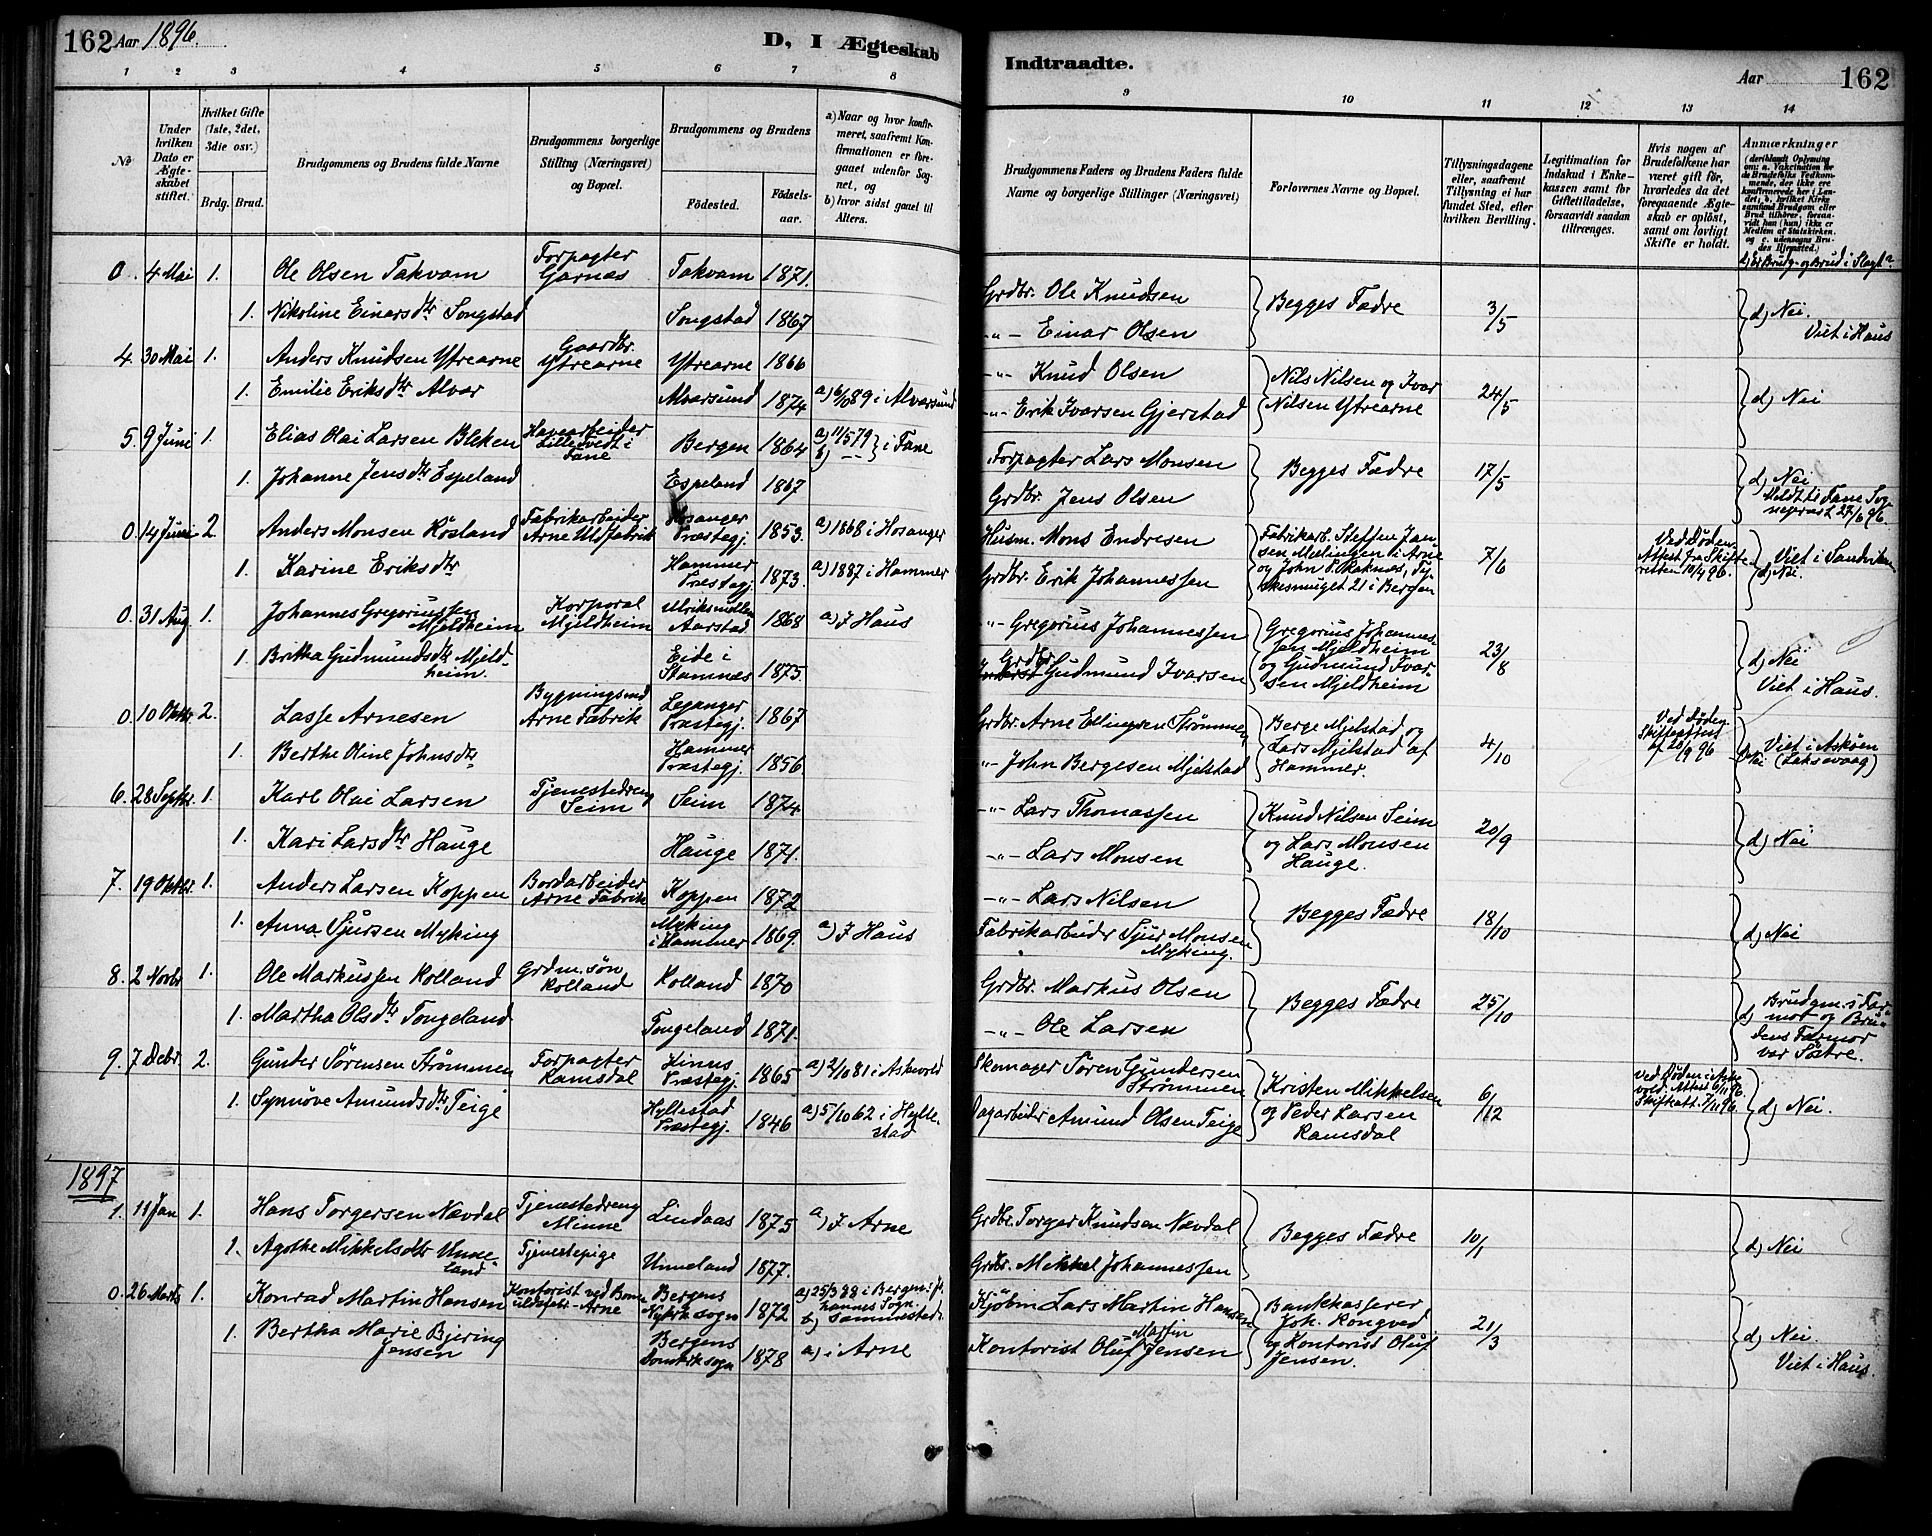 162 Aar 1896.
D, I Ægteskab
1 2 3 4 5 6 7 8
No
Under hvilken Dato er Ægteskabet stiftet.
Hvilket Gifte (1ste, 2det, 3die osv.)
Brdg. Brud.
Brudgommens og Brudens fulde Navne
Brudgommens borgerlige Stilling (Næringsvei) og Bopæl.
Brudgommens og Brudens
Fødested. Fødselsaar.
a) Naar og hvor konfirmeret, saafremt Konfirmationen er foregaaet udenfor Sognet, og
b) hvor sidst gaaet til Alters.
0. 4 Mai 1. Ole Olsen Takvam Forpagter Garnæs Takvam 1871.
1. Nikoline Einarsdtr Songstad Songstad 1867
4. 30 Mai 1. Anders Knudsen Ytrearne Gaardbr. Ytrearne Ytrearne 1866
1. Emilie Eriksdtr Alvær Alværsund 1874 a) 6/10 89 i Alværsund
5. 9 Juni 1. Elias Olai Larsen Bleken Havearbeider Lilletvedt i Fane Bergen 1864 a) 11/5 79 b) -- } i Fane
1. Johanne Jensdtr Espeland Espeland 1867
0. 14 Juni 2. Anders Monsen Rösland Fabrikarbeider Arne Uldfabrik Hosanger Præstegj. 1853. a) 1868 i Hosanger
1. Karine Eriksdtr Hammer Præstegj. 1873. a) 1887 i Hammer
0. 31 Aug 1. Johannes Gregoriussen Mjeldheim Korporal Mjeldheim Ulriksmöllen Aarstad 1868 a) I Haus
1. Britha Gudmundsdtr Mjeldheim. Eide i Stamnæs 1875.
0. 10 Oktbr. 2. Lasse Arnesen Bygningsmd Arne Fabrik Leganger Præstegj. 1867
1. Berthe Oline Johnsdtr Hammer Præstegj. 1856.
6. 28 Septbr. 1. Karl Olai Larsen Tjenestedreng Seim Seim 1874
1. Kari Larsdtr Hauge Hauge 1871.
7. 19 Oktbr. 1. Anders Larsen Koppen Bordarbeider Arne Fabrik Koppen 1872
1. Anna Sjursen Myking Myking i Hammer 1869. a) I Haus
8. 2 Novbr 1. Ole Markussen Rolland Grdm. søn Rolland Rolland 1870
1. Martha Olsdtr Tongeland Tongeland 1871.
9. 7 Debr 2. Gunder Sørensen Strømmen Forpagter Ramsdal Kinns Præstegj. 1865 a) 2/10 81 i Askevold
1. Synnöve Amundsdtr Teige Hyllestad Præstegj. 1846 a) 5/10 62 i Hyllestad
1897
1. 11 Jan 1. Hans Torgersen Nævdal Tjenestedreng Minne Lindaas 1875 a) I Arne
1. Agothe Mikkelsdtr Unneland Tjenestepige Unneland 1877.
0. 26 Marts 1. Konrad Martin Hansen Kontorist ved Bomuldsfabr. Arne Bergens Nykirk sogn 1872 a) 25/3 88 i Bergens Johannes Sogn. b) sammesteds.
1. Bertha Marie Bjering Jensen Bergens Domkirk sogn 1878 a) i Arne
Indtraadte.
Aar 162
9 10 11 12 13 14
Brudgommens Faders og Brudens Faders fulde Navne og borgerlige Stillinger (Næringsvei)
Forlovernes Navne og Bopæl.
Tillysningsdagene eller, saafremt Tillysning ei har fundet Sted, efter hvilken Bevilling.
Legitimation for Indskud i Enkekassen samt for Giftetilladelse, forsaavidt saadan tiltrænges.
Hvis nogen af Brudefolkene har været gift før, hvorledes da det foregaaende Ægteskab er opløst, samt om lovligt Skifte er holdt.
Anmærkninger
(deriblandt Oplysning om: a. Vaccination for de Brudefolks Vedkommende, der ikke ere konfirmerede her i Landet; b. hvilket Kirkesamfund Brudgom eller Brud tilhører, forsaavidt han (hun) ikke er Medlem af Statskirken, og c. udensogns Brudes Hjemsted.)
d) Er Brudg. og Brud i Slegt?
Grdbr. Ole Knudsen } Begges Fædre 3/5 d) Nei. Viet i Haus
-"- Einar Olsen
-"- Knud Olsen } Nils Nilsen og Ivar Nilsen Ytrearne 24/5 d) Nei
-"- Erik Ivarsen Gjerstad
Forpagter Lars Monsen } Begges Fædre 17/5 d) Nei Meldt til Fane Sognepræst 27/6 96.
Grdbr. Jens Olsen
Husm. Mons Endresen } Fabrikarb. Steffen Jansen Mælingen i Arne og John P. Skaknæs, Tyskesmuget 21 i Bergen 7/6 Ved Døden. Attest fra Skifteretten 10/4 96. Viet i Sandviken d) Nei.
Grdbr. Erik Johannessen
-"- Gregorius Johannessen } Gregorius Johannessen Mjeldheim og Gudmund Ivarsen Mjeldheim 23/8 d) Nei Viet i Haus.
Grdbr. Gudmund Ivarsen
Grdbr. Arne Ellingsen Strømmen } Berge Mjelstad og Lars Mjelstad af Hammer. 4/10 Ved Døden. Skifteattest af 20/9 96 Viet i Askøen (Laksevaag) d) Nei
-"- John Bergesen Mjelstad
-"- Lars Thomassen } Knud Nilsen Seim og Lars Monsen Hauge. 20/9 d) Nei
-"- Lars Monsen
-"- Lars Nilsen } Begges Fædre 18/10 d) Nei
Fabrikarbeider Sjur Monsen Myking.
Grdbr. Markus Olsen } Begges Fædre 25/10 d) Brudgm.s Farmor og Brudens Farmor var Søstre.
-"- Ole Larsen
Skomager Søren Gundersen Strömmen } Kristen Mikkelsen og Peder Larsen Ramsdal 6/12 Ved Døden i Askevold. Attest 6/11 96. Skifteatt. 7/11 96. d) Nei.
Dagarbeider Amund Olsen Teige
Grdbr. Torger Knudsen Nævdal } Begges Fædre 10/1 d) Nei
Grdbr. Mikkel Johannessen
Kjøbm. Lars Martin Hansen } Bankkasserer Joh. Rongved og Kontorist Oluf Jensen. 21/3 d) Nei. Viet i Haus.
Kontorist Oluf Martin Jensen